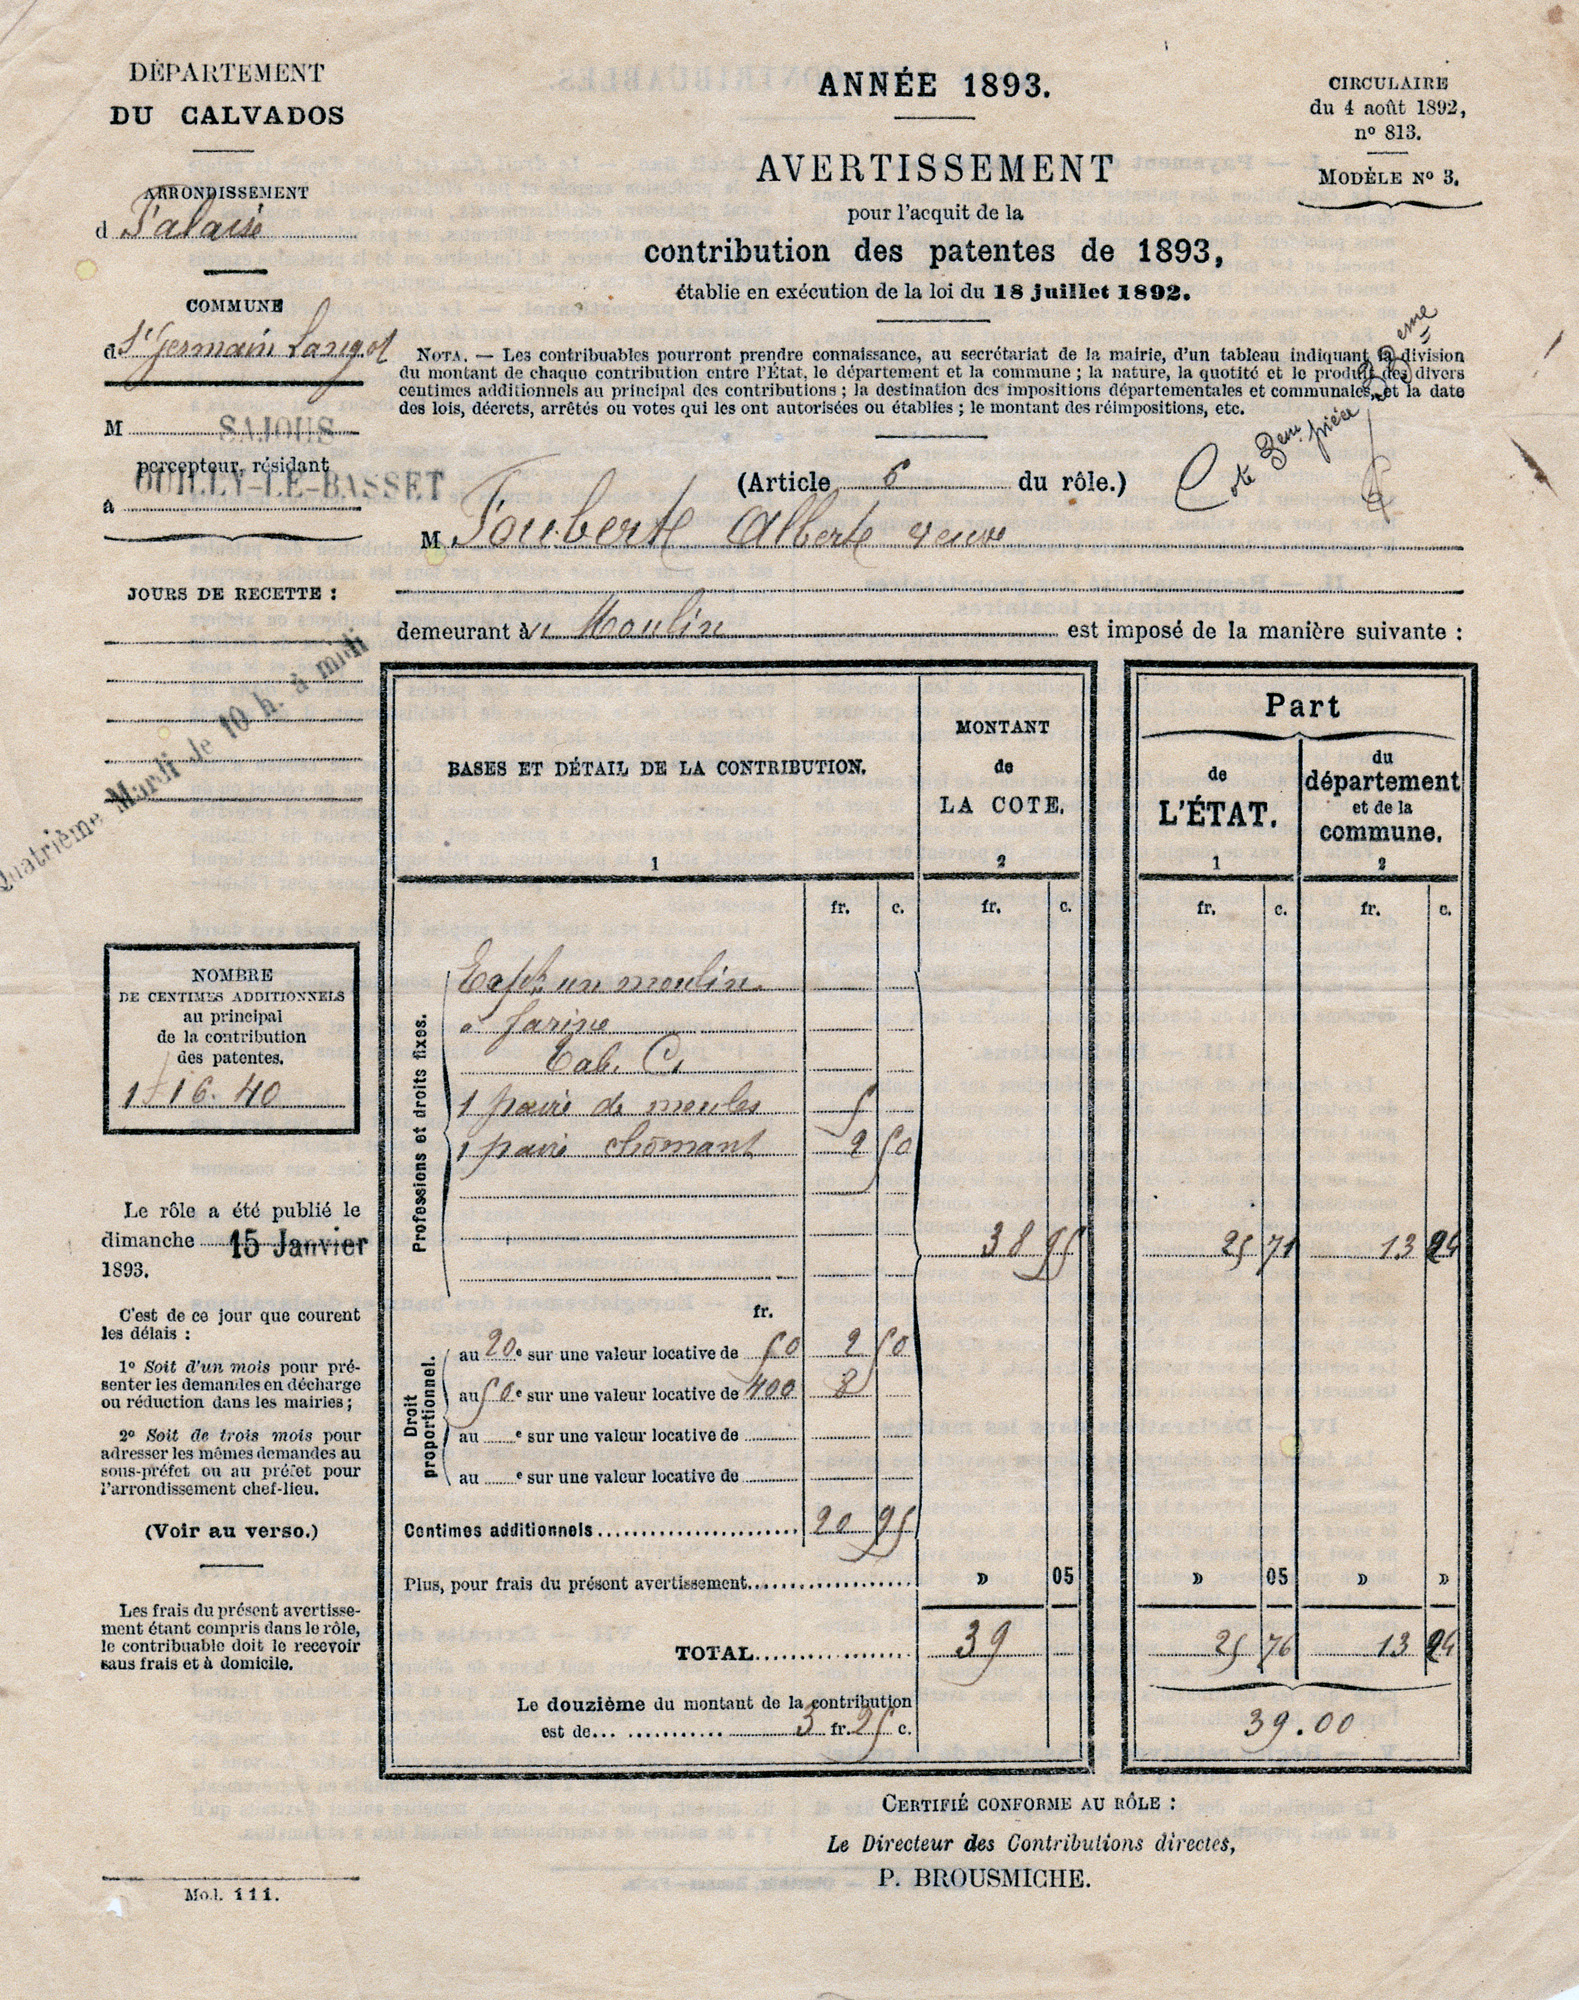 DÉPARTEMENT
DU CALVADOS
ARRONDISSEMENT
d Falaise
COMMUNE
d St Germain Langot
M SAJOUS
percepteur, résidant
à OUILLY-LE-BASSET
JOURS DE RECETTE :
Quatrième Mardi de 10 h. à midi
NOMBRE
DE CENTIMES ADDITIONNELS
au principal
de la contribution
des patentes.
1 16. 40
Le rôle a été publié le
dimanche 15 Janvier
1893.
C'est de ce jour que courent
les délais :
1º Soit d'un mois pour pré-
senter les demandes en décharge
ou réduction dans les mairies ;
2º Soit de trois mois pour
adresser les mêmes demandes au
sous-préfet ou au préfet pour
l'arrondissement chef-lieu.
(Voir au verso.)
Les frais du présent avertisse-
ment étant compris dans le rôle,
le contribuable doit le recevoir
sans frais et à domicile.
Mod. 111.
ANNÉE 1893.
AVERTISSEMENT
pour l'acquit de la
contribution des patentes de 1893,
établie en exécution de la loi du 18 juillet 1892.
CIRCULAIRE
du 4 août 1892,
nº 813.
MODÈLE Nº 3.
NOTA. — Les contribuables pourront prendre connaissance, au secrétariat de la mairie, d'un tableau indiquant la division
du montant de chaque contribution entre l'État, le département et la commune ; la nature, la quotité et le produit des divers
centimes additionnels au principal des contributions ; la destination des impositions départementales et communales, et la date
des lois, décrets, arrêtés ou votes qui les ont autorisées ou établies ; le montant des réimpositions, etc.
Cote 3eme pièce
(Article 6 du rôle.)
M Foubert Albert veuve
demeurant à Moulin est imposé de la manière suivante :
BASES ET DÉTAIL DE LA CONTRIBUTION.
1
MONTANT
de
LA COTE.
2
Part
de
L'ÉTAT.
1
du
département
et de la
commune.
2
fr. c. fr. c. fr. c. fr. c.
Professions et droits fixes.
un moulin
à farine
Tab. C.
1 paire de meules 5
1 paire chômant 2 50
38 95 25 71 13 24
fr.
Droit
proportionnel.
au 20e sur une valeur locative de 50 2 50
au 50e sur une valeur locative de 400 8
au e sur une valeur locative de
au e sur une valeur locative de
Centimes additionnels 20 95
Plus, pour frais du présent avertissement » 05 » 05 » »
TOTAL 39 25 76 13 24
Le douzième du montant de la contribution
est de 3 fr. 25 c.
39.00
CERTIFIÉ CONFORME AU RÔLE :
Le Directeur des Contributions directes,
P. BROUSMICHE.